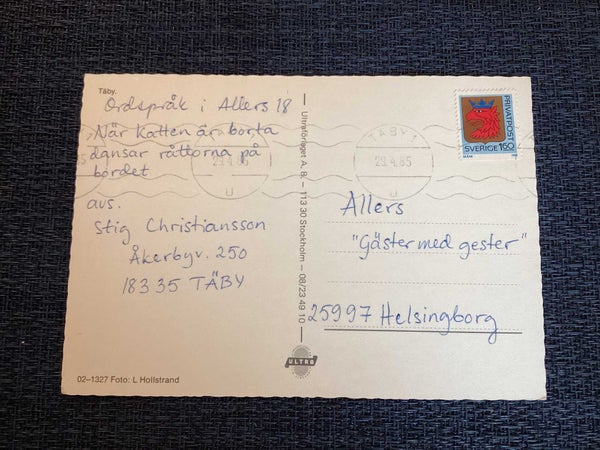 Täby.
Ordspråk i Allers 18
När Katten är borta
dansar råttorna på
bordet
avs.
Stig Christiansson
Åkerbyv. 250
183 35 TÄBY
02-1327 Foto: L Hollstrand
Ultraförlaget A.B. – 113 30 Stockholm – 08/23 49 10
ULTRA
TÄBY 1
29.4.85
U
29.4.85
U
PRIVATPOST
SVERIGE 160
Allers
"Gäster med gester"
25997 Helsingborg